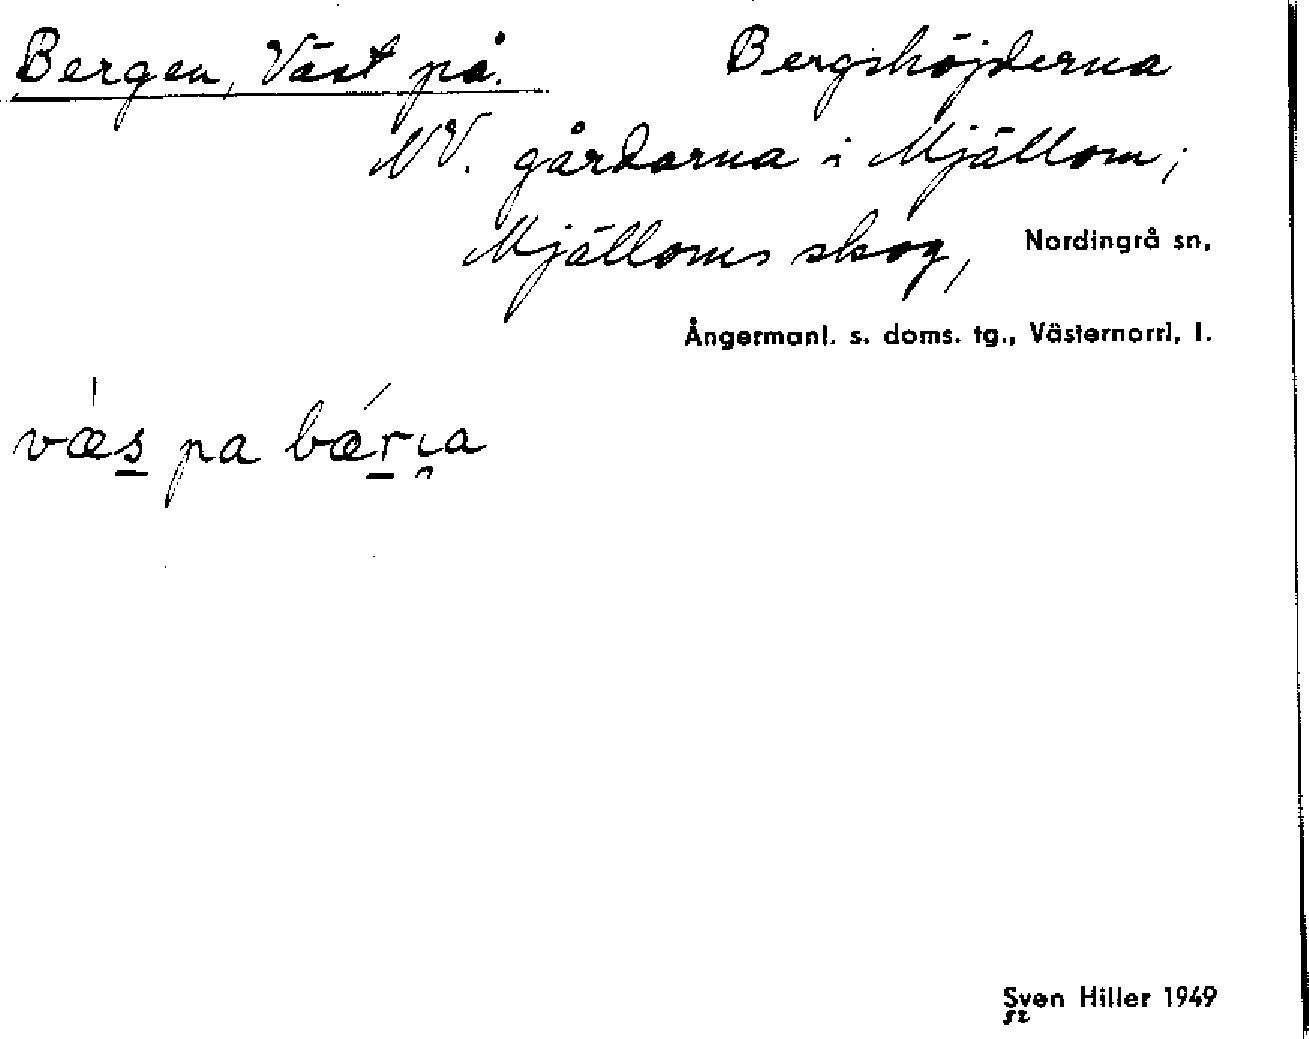 Bergen, Väst på. Bergshöjderna
NV. gårdarna i Mjällom;
Mjälloms skog, Nordingrå sn,
Ångermanl. s. doms. tg., Västernorrl. l.
væs pa bærıa
Sven Hiller 1949